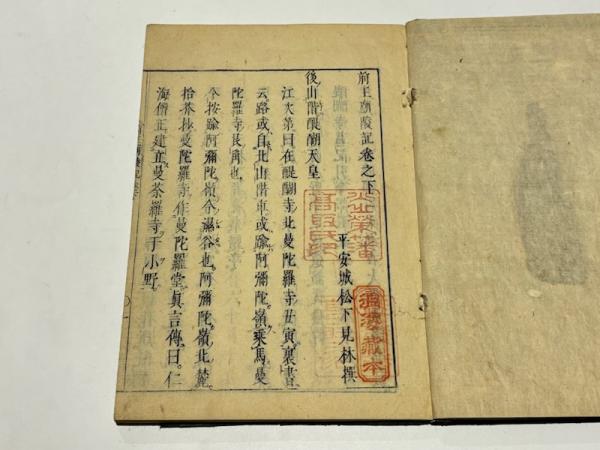 前王廟陵記卷之下
平安城松下見林撰
後山階醍醐天皇
江次第曰在醍醐寺北曼陀羅寺丑寅裏書
云路或自北山階車或踰阿彌陀嶺乘馬曼
陀羅寺艮角也
今按踰阿彌陀嶺今滑谷也阿彌陀嶺北麓
拾芥抄曼陀羅寺作曼陀羅堂眞言傳曰仁
海僧正建立曼荼羅寺于小野
藏本